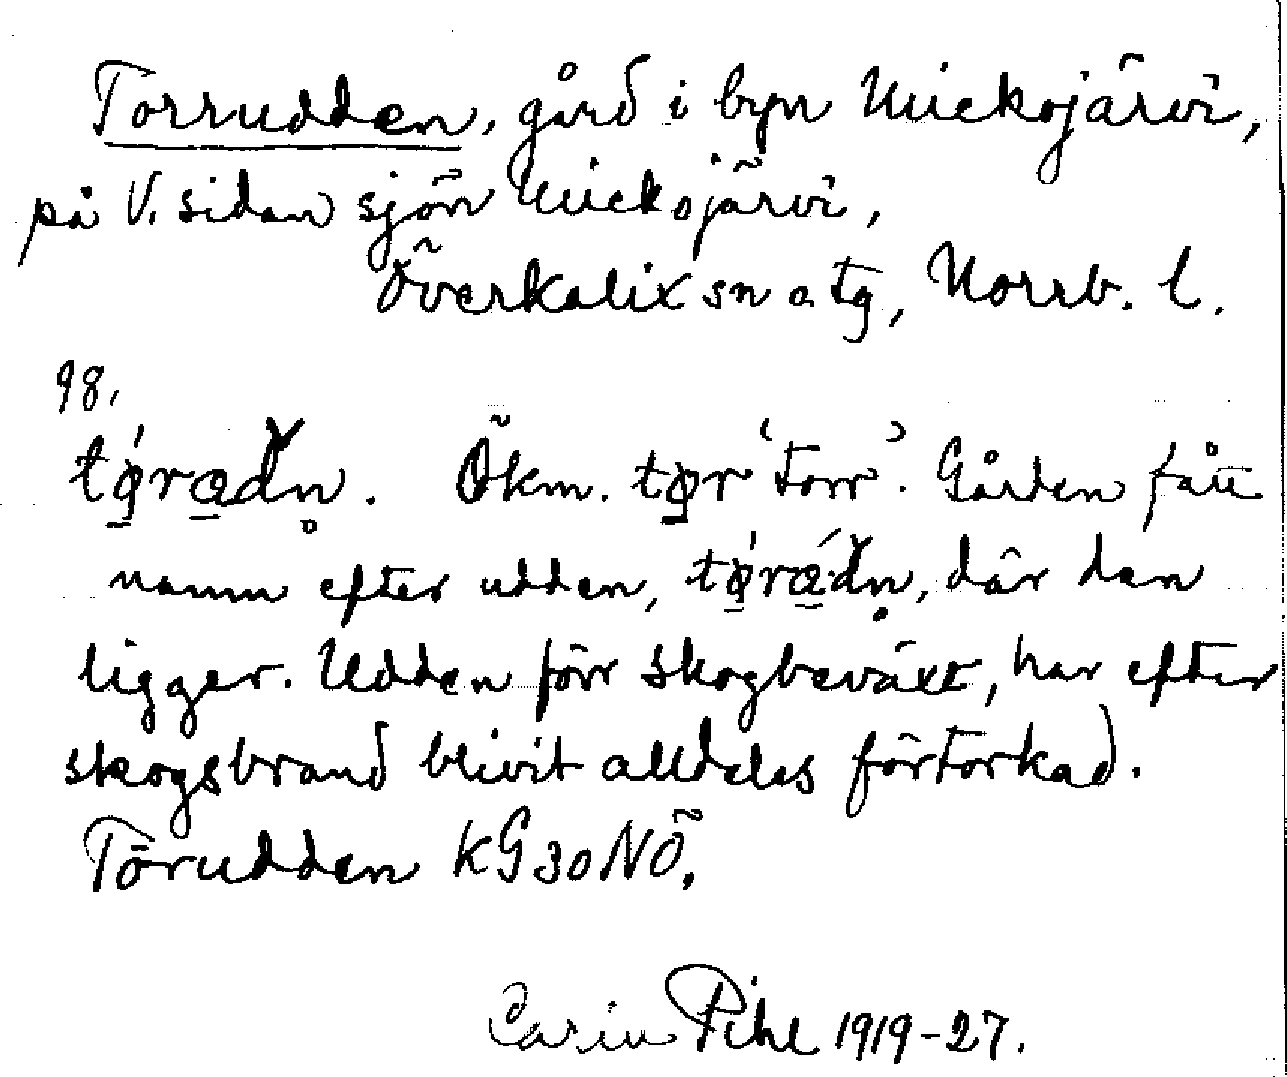 Torrudden, gård i byn Mickojärvi,
på V. sidan sjön Mickojärvi,
Överkalix sn o. tg, Norrb. l.
98.
tǫ́rąd̆n̥. Ökm. tǫr 'torr'. Gården fått
namn efter udden, tǫ́rą́d̆n̥, där den
ligger. Udden förr skogbeväxt, har efter
skogsbrand blivit alldeles förtorkad.
Törudden KG 30 NÖ.
Carin Pihl 1919-27.